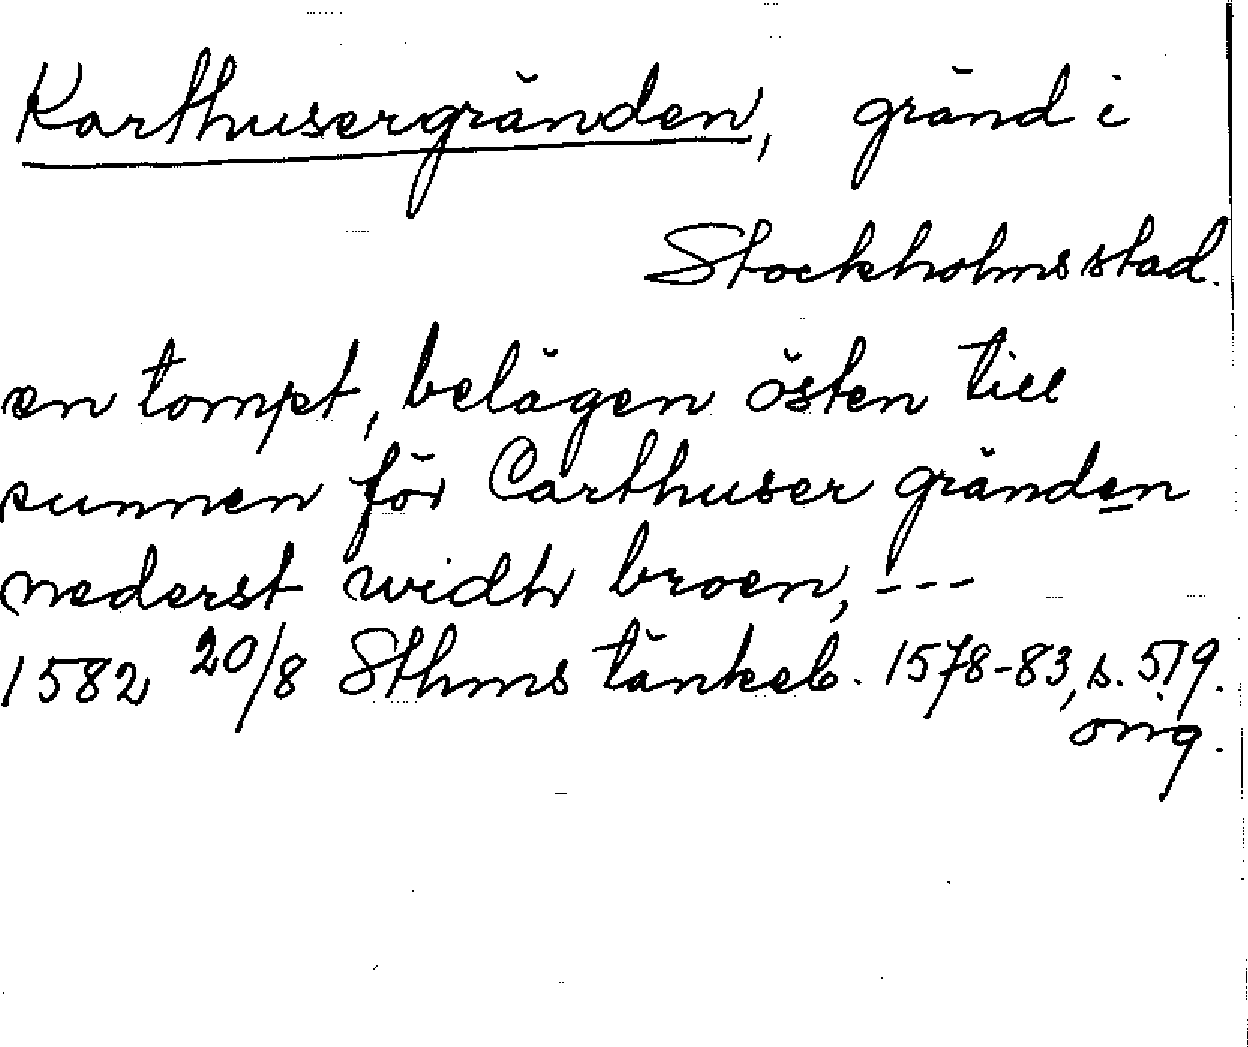 Karthusergränden, gränd i
Stockholms stad.
en tompt, belägen östen till
sunnen för Carthuser gränden
nederst widh broen, ---
1582 20/8 Sthms tänkeb. 1578-83, s. 519.
orig.